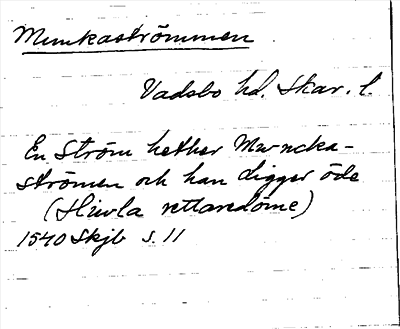 Munkaströmmen
Vadsbo hd. Skar. l.
En Ström hether Mwncka-
strömen och han ligger öde
(Hiwla rettaredöme)
1540 Skjb s. 11